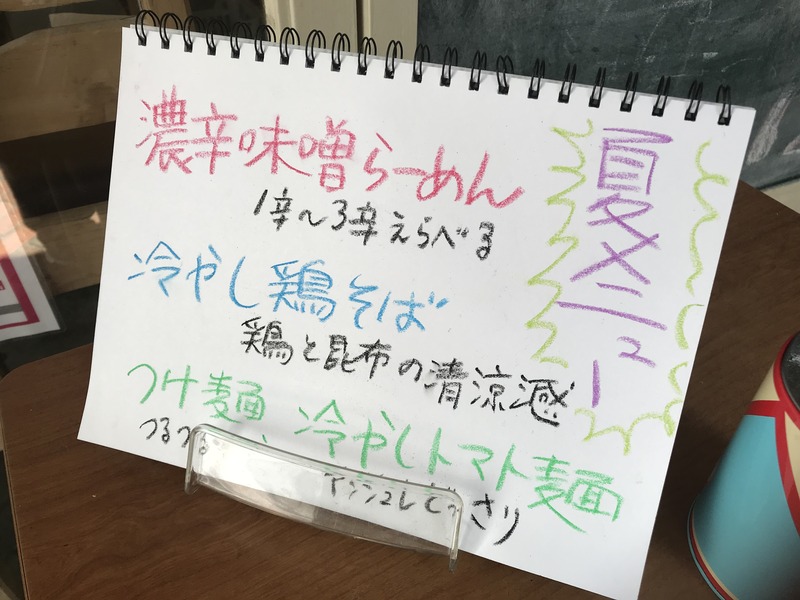 夏メニュー
濃辛味噌らーめん
1辛〜3辛えらべる
冷やし鶏そば
鶏と昆布の清涼感
つけ麺、冷やしトマト麺
つるつる
さり